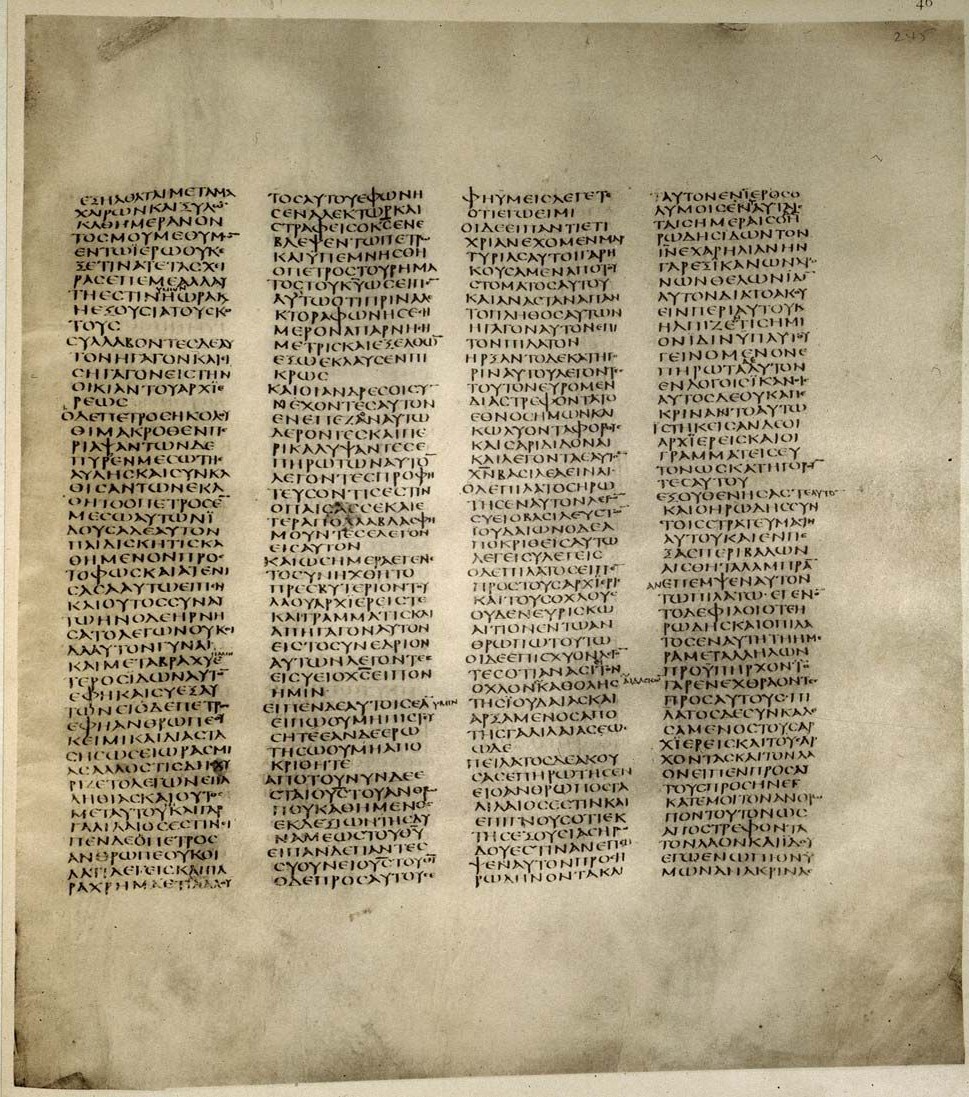 46
ΕΞΗΛΘΑΤΑΙΜΕΤΑΜΑ
ΧΑΙΡΩΝΚΑΙΞΥΛΩ
ΚΑΘΗΜΕΡΑΝΟΝ
ΤΟϹΜΟΥΜΕΘΥΜΩ
ΕΝΤΩΪΕΡΩΟΥΚΕ
ΞΕΤΙΝΑΤΕΤΑϹΧΙ
ΡΑϹΕΠΕΜΕΑΛΛΑΥ
ΤΗΕϹΤΙΝΗΩΡΑΚ
ΗΕΞΟΥϹΙΑΤΟΥϹΚ
ΤΟΥϹ
ϹΥΛΛΑΒΟΝΤΕϹΔΕΑΥ
ΤΟΝΗΓΑΓΟΝΚΑΙΗ
ϹΗΓΑΓΟΝΕΙϹΤΗΝ
ΟΙΚΙΑΝΤΟΥΑΡΧΪΕ
ΡΕΩϹ
ΟΔΕΠΕΤΡΟϹΗΚΟΛΟΥ
ΘΙΜΑΚΡΟΘΕΝΠΕ
ΡΙΑΨΑΝΤΩΝΔΕ
ΠΥΡΕΝΜΕϹΩΤΗϹ
ΑΥΛΗϹΚΑΙϹΥΝΚΑ
ΘΙϹΑΝΤΩΝΕΚΑ
ΘΗΤΟΟΠΕΤΡΟϹΕ
ΜΕϹΩΑΥΤΩΝΪ
ΔΟΥϹΑΔΕΑΥΤΟΝ
ΠΑΙΔΙϹΚΗΤΙϹΚΑ
ΘΗΜΕΝΟΝΠΡΟϹ
ΤΟΦΩϹΚΑΙΑΤΕΝΙ
ϹΑϹΑΑΥΤΩΕΙΠΕΝ
ΚΑΙΟΥΤΟϹϹΥΝΑΥ
ΤΩΗΝΟΔΕΗΡΝΗ
ϹΑΤΟΛΕΓΩΝΟΥΚΟΙ
ΔΑΑΥΤΟΝΓΥΝΑΙ
ΚΑΙΜΕΤΑΒΡΑΧΥΕ
ΤΕΡΟϹΙΔΩΝΑΥΤ
ΕΦΗΚΑΙϹΥΕΞΑΥ
ΤΩΝΕΙΟΔΕΠΕΤΡ
ΕΦΗΑΝΘΡΩΠΕΟΥ
ΚΕΙΜΙΚΑΙΔΙΑϹΤΑ
ϹΗϹΩϹΕΙΩΡΑϹΜΙ
ΑϹΑΛΛΟϹΤΙϹΔΙΙϹΧΥ
ΡΙΖΕΤΟΛΕΓΩΝΕΠΑ
ΛΗΘΙΑϹΚΑΙΟΥΤΟϹ
ΜΕΤΑΥΤΟΥΚΑΙΓΑΡ
ΓΑΛΙΛΑΙΟϹΕϹΤΙΝΕΙ
ΠΕΝΔΕΟΠΕΤΡΟϹ
ΑΝΘΡΩΠΕΟΥΚΟΙ
ΔΑΤΙΛΕΓΕΙϹΚΑΙΠΑ
ΡΑΧΡΗΜΑΕΤΙΛΑΛΟΥ
ΤΟϹΑΥΤΟΥΕΦΩΝΗ
ϹΕΝΑΛΕΚΤΩΡΚΑΙ
ϹΤΡΑΦΕΙϹΟΚϹΕΝΕ
ΒΛΕΨΕΝΤΩΠΕΤΡ
ΚΑΙΥΠΕΜΝΗϹΘΗ
ΟΠΕΤΡΟϹΤΟΥΡΗΜΑ
ΤΟϹΤΟΥΚΥΩϹΕΙΠ
ΑΥΤΩΟΤΙΠΡΙΝΑΛΕ
ΚΤΟΡΑΦΩΝΗϹΕϹΗ
ΜΕΡΟΝΑΠΑΡΝΗϹΗ
ΜΕΤΡΙϹΚΑΙΕΞΕΛΘΩ
ΕΞΩΕΚΛΑΥϹΕΝΠΙ
ΚΡΩϹ
ΚΑΙΟΙΑΝΔΡΕϹΟΙϹΥ
ΝΕΧΟΝΤΕϹΑΥΤΟΝ
ΕΝΕΠΕΖΑΝΑΥΤΩ
ΔΕΡΟΝΤΕϹΚΑΙΠΕ
ΡΙΚΑΛΥΨΑΝΤΕϹΕ
ΠΗΡΩΤΩΝΑΥΤΟ
ΛΕΓΟΝΤΕϹΠΡΟΦΗ
ΤΕΥϹΟΝΤΙϹΕϹΤΙΝ
ΟΠΑΙϹΑϹϹΕΚΑΙΕ
ΤΕΡΑΠΟΛΛΑΒΛΑϹΦΗ
ΜΟΥΝΤΕϹΕΛΕΓΟΝ
ΕΙϹΑΥΤΟΝ
ΚΑΙΩϹΗΜΕΡΑΕΓΕΝΕ
ΤΟϹΥΝΗΧΘΗΤΟ
ΠΡΕϹΒΥΤΕΡΙΟΝΤΟΥ
ΛΑΟΥΑΡΧΙΕΡΕΙϹΤΕ
ΚΑΙΓΡΑΜΜΑΤΙϹΚΑΙ
ΑΠΗΓΑΓΟΝΑΥΤΟΝ
ΕΙϹΤΟϹΥΝΕΔΡΙΟΝ
ΑΥΤΩΝΛΕΓΟΝΤΕϹ
ΕΙϹΥΕΙΟΧϹΕΙΠΟΝ
ΗΜΙΝ
ΕΙΠΕΝΔΕΑΥΤΟΙϹΕΑΥΜΙΝ
ΕΙΠΩΟΥΜΗΠΙϹΤΕΥ
ϹΗΤΕΕΑΝΔΕΕΡΩ
ΤΗϹΩΟΥΜΗΑΠΟ
ΚΡΙΘΗΤΕ
ΑΠΟΤΟΥΝΥΝΔΕΕ
ϹΤΑΙΟΥϹΤΟΥΑΝΘΡ
ΠΟΥΚΑΘΗΜΕΝΟϹ
ΕΚΔΕΞΙΩΝΤΗϹΔΥ
ΝΑΜΕΩϹΤΟΥΘΥ
ΕΙΠΑΝΔΕΠΑΝΤΕϹ
ϹΥΟΥΝΕΙΟΥϹΤΟΥΘΥ
ΟΔΕΠΡΟϹΑΥΤΟΥϹ
ΦΗΥΜΕΙϹΛΕΓΕΤΕ
ΟΤΙΕΓΩΕΙΜΙ
ΟΙΔΕΕΙΠΑΝΤΙΕΤΙ
ΧΡΙΑΝΕΧΟΜΕΝΜΑΡ
ΤΥΡΙΑϹΑΥΤΟΙΓΑΡΗ
ΚΟΥϹΑΜΕΝΑΠΟΤΟΥ
ϹΤΟΜΑΤΟϹΑΥΤΟΥ
ΚΑΙΑΝΑϹΤΑΝΑΠΑΝ
ΤΟΠΛΗΘΟϹΑΥΤΩΝ
ΗΓΑΓΟΝΑΥΤΟΝΕΠΙ
ΤΟΝΠΙΛΑΤΟΝ
ΗΡΞΑΝΤΟΔΕΚΑΤΗΓΟ
ΡΙΝΑΥΤΟΥΛΕΓΟΝΤΕϹ
ΤΟΥΤΟΝΕΥΡΟΜΕΝ
ΔΙΑϹΤΡΕΦΟΝΤΑΤΟ
ΕΘΝΟϹΗΜΩΝΚΑΙ
ΚΩΛΥΟΝΤΑΦΟΡΟΥϹ
ΚΑΙϹΑΡΙΔΙΔΟΝΑΙ
ΚΑΙΛΕΓΟΝΤΑΕΑΥΤΟ
ΧΝΒΑϹΙΛΕΑΕΙΝΑΙ
ΟΔΕΠΙΛΑΤΟϹΗΡΩ
ΤΗϹΕΝΑΥΤΟΝΛΕΓΩ
ϹΥΕΙΟΒΑϹΙΛΕΥϹΤΩ
ΙΟΥΔΑΙΩΝΟΔΕΑ
ΠΟΚΡΙΘΕΙϹΑΥΤΩ
ΛΕΓΕΙϹΥΛΕΓΕΙϹ
ΟΔΕΠΙΛΑΤΟϹΕΙΠΕ
ΠΡΟϹΤΟΥϹΑΡΧΙΕΡΙϹ
ΚΑΙΤΟΥϹΟΧΛΟΥϹ
ΟΥΔΕΝΕΥΡΙϹΚΩ
ΑΙΤΙΟΝΕΝΤΩΑΝ
ΘΡΩΠΩΤΟΥΤΩ
ΟΙΔΕΕΠΙϹΧΥΟΝΛΕΓΟ
ΤΕϹΟΤΙΑΝΑϹΙΕΙΤΟΝ
ΟΧΛΟΝΚΑΘΟΛΗϹ
ΤΗϹΪΟΥΔΑΙΑϹΚΑΙ
ΑΡΞΑΜΕΝΟϹΑΠΟ
ΤΗϹΓΑΛΙΛΑΙΑϹΕΩϹ
ΩΔΕ
ΠΕΙΛΑΤΟϹΔΕΑΚΟΥ
ϹΑϹΕΠΗΡΩΤΗϹΕΝ
ΕΙΟΑΝΘΡΩΠΟϹΓΑ
ΛΙΛΑΙΟϹΕϹΤΙΝΚΑΙ
ΕΠΙΓΝΟΥϹΟΤΙΕΚ
ΤΗϹΕΞΟΥϹΙΑϹΗΡΩ
ΔΟΥΕϹΤΙΝΑΝΕΠΕ
ΨΕΝΑΥΤΟΝΠΡΟϹΗ
ΡΩΔΗΝΟΝΤΑΚΑΙ
ΑΥΤΟΝΕΝΙΕΡΟϹΟ
ΛΥΜΟΙϹΕΝΑΥΤΑΙϹ
ΤΑΙϹΗΜΕΡΑΙϹΟΗ
ΡΩΔΗϹΙΔΩΝΤΟΝ
ΙΝΕΧΑΡΗΛΙΑΝΗΝ
ΓΑΡΕΞΙΚΑΝΩΝΧΡ
ΝΩΝΘΕΛΩΝΙΔΙ
ΑΥΤΟΝΔΙΑΤΟΑΚΟΥ
ΕΙΝΠΕΡΙΑΥΤΟΥΚ
ΗΛΠΙΖΕΤΙϹΗΜΙ
ΟΝΙΔΙΝΥΠΑΥΤΟΥ
ΓΕΙΝΟΜΕΝΟΝΕ
ΠΗΡΩΤΑΑΥΤΟΝ
ΕΝΛΟΓΟΙϹΪΚΑΝΟΙϹ
ΑΥΤΟϹΔΕΟΥΚΑΠΕ
ΚΡΙΝΑΤΟΑΥΤΩ
ΙϹΤΗΚΕΙϹΑΝΔΕΟΙ
ΑΡΧΪΕΡΕΙϹΚΑΙΟΙ
ΓΡΑΜΜΑΤΕΙϹΕΥ
ΤΟΝΩϹΚΑΤΗΓΟΡΟΥ
ΤΕϹΑΥΤΟΥ
ΕΞΟΥΘΕΝΗϹΑϹΔΕΑΥΤΟ
ΚΑΙΟΗΡΩΔΗϹϹΥΝ
ΤΟΙϹϹΤΡΑΤΕΥΜΑϹΙΝ
ΑΥΤΟΥΚΑΙΕΝΠΕ
ΞΑϹΠΕΡΙΒΑΛΩΝ
ΑΙϹΘΗΤΑΛΑΜΠΡΑ
ΑΝΕΠΕΜΨΕΝΑΥΤΟΝ
ΤΩΠΙΛΑΤΩΕΓΕΝΟ
ΤΟΔΕΦΙΛΟΙΟΤΕΗ
ΡΩΔΗϹΚΑΙΟΠΙΛΑ
ΤΟϹΕΝΑΥΤΗΤΗΗΜΕ
ΡΑΜΕΤΑΛΛΗΛΩΝ
ΠΡΟΥΠΗΡΧΟΝΤΟ
ΓΑΡΕΝΕΧΘΡΑΟΝΤΕϹ
ΠΡΟϹΑΥΤΟΥϹΠΙ
ΛΑΤΟϹΔΕϹΥΝΚΑΛΕ
ϹΑΜΕΝΟϹΤΟΥϹΑΡ
ΧΪΕΡΕΙϹΚΑΙΤΟΥϹΑΡ
ΧΟΝΤΑϹΚΑΙΤΟΝΛΑ
ΟΝΕΙΠΕΝΠΡΟϹΑΥ
ΤΟΥϹΠΡΟϹΗΝΕΓ
ΚΑΤΕΜΟΙΤΟΝΑΝΘΡΩ
ΠΟΝΤΟΥΤΟΝΩϹ
ΑΠΟϹΤΡΕΦΟΝΤΑ
ΤΟΝΛΑΟΝΚΑΙΙΔΟΥ
ΕΓΩΕΝΩΠΙΟΝΥ
ΜΩΝΑΝΑΚΡΙΝΑϹ